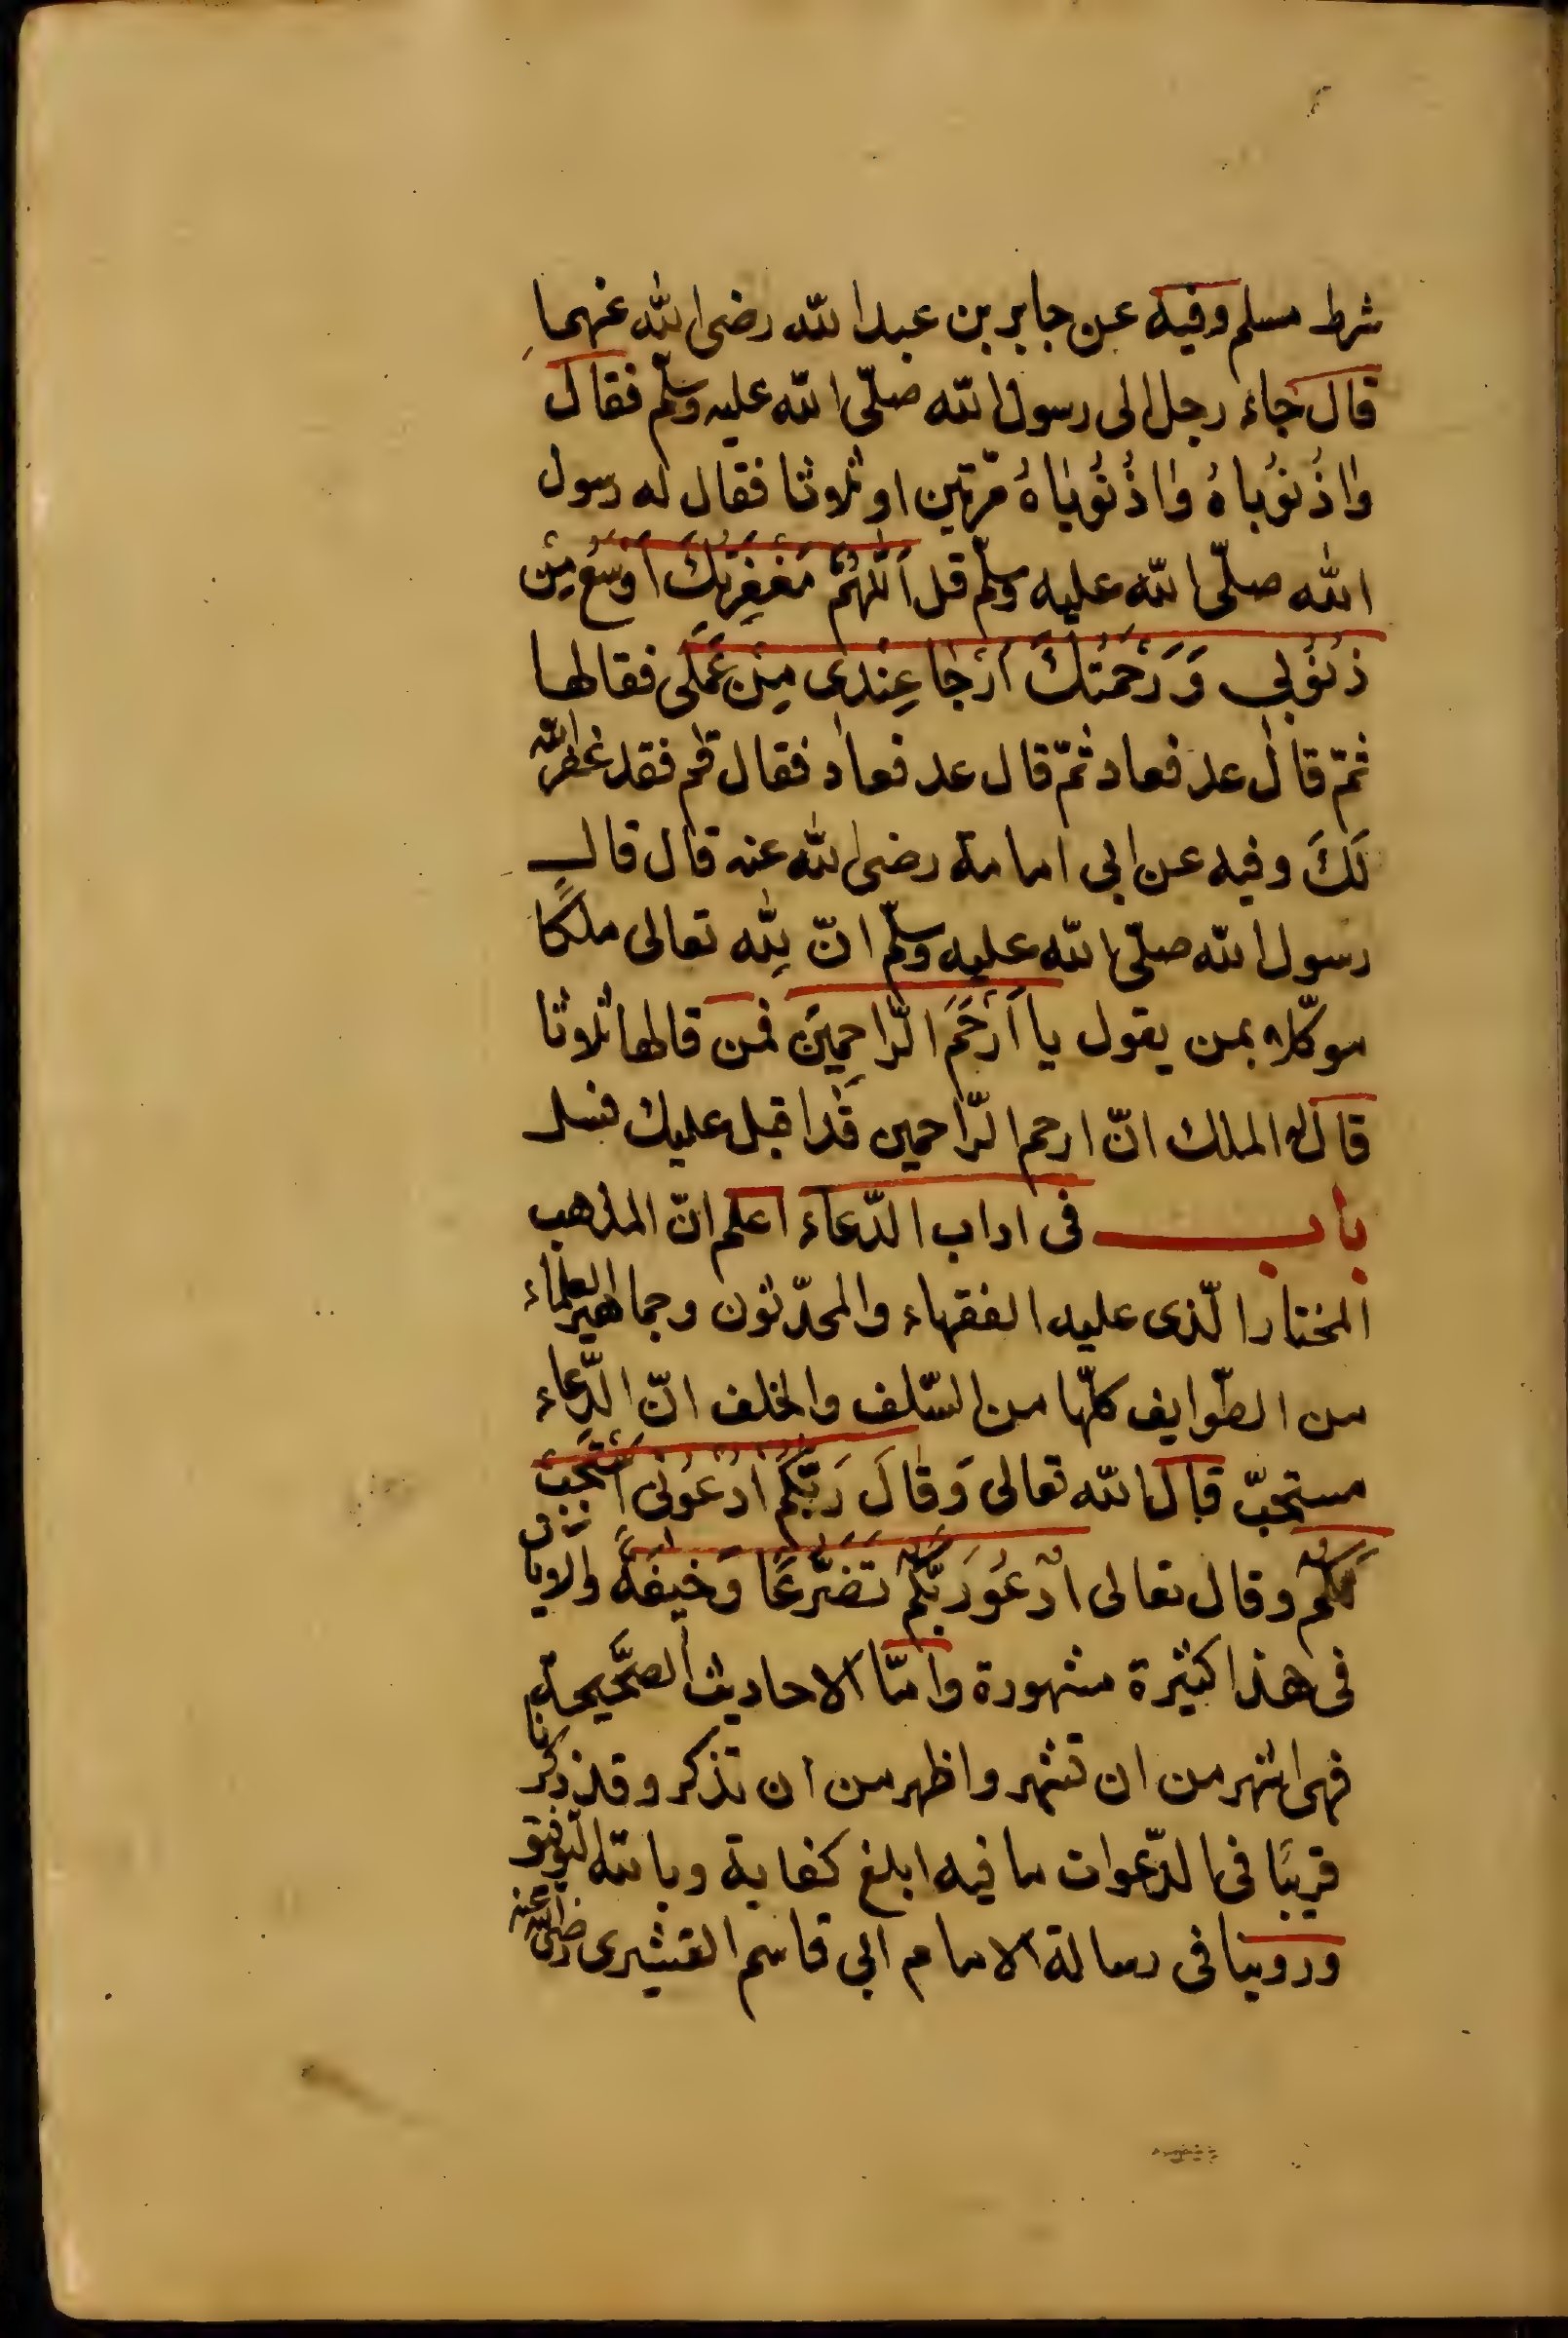 شرط مسلم وفيه عن جابر بن عبد الله رضى الله عنهما
قال جاء رجل الى رسول الله صلّى الله عليه وسلّم فقال
وَاذُنُوبَاهُ وَاذُنُوبَاهُ مرّتين او ثلاثا فقال له رسول
الله صلّى الله عليه وسلّم قل اَللّٰهُمَّ مَغْفِرَتُكَ اَوْسَعُ مِنْ
ذُنُوبِى وَرَحْمَتُكَ اَرْجَا عِنْدِى مِنْ عَمَلِى فقالها
ثمّ قال عد فعاد ثمّ قال عد فعاد فقال قم فقد غفر الله
لَكَ وفيه عن ابى امامة رضى الله عنه قال قال
رسول الله صلّى الله عليه وسلّم انّ لِلّٰه تعالى ملكًا
موكّلا بمن يقول يا اَرْحَمَ الرّاحِمِينَ فمن قالها ثلاثا
قال له الملك انّ ارحم الرّاحمين قَد اقبل عليك فسل
باب فى اداب الدّعاء اعلم انّ المذهب
المختار الّذى عليه الفقهاء والمحدّثون وجماهير العلماء
من الطّوايف كلّها من السّلف والخلف انّ الدّعاء
مستحبّ قال الله تعالى وَقَالَ رَبُّكُمُ ادْعُونِى اَسْتَجِبْ
لَكُمْ وقال تعالى اُدْعُو رَبَّكُمْ تَضَرُّعًا وَخِيفَةً والايات
فى هذا كثيرة مشهورة وامّا الاحاديث الصّحيحة
فهى اشهر من ان تشهر واظهر من ان تذكر وقد ذكرنا
قريبًا فى الدّعوات ما فيه ابلغ كفاية وبالله التوفيق
وروينا فى رسالة الامام ابى قاسم القشيرى رضى الله عنه